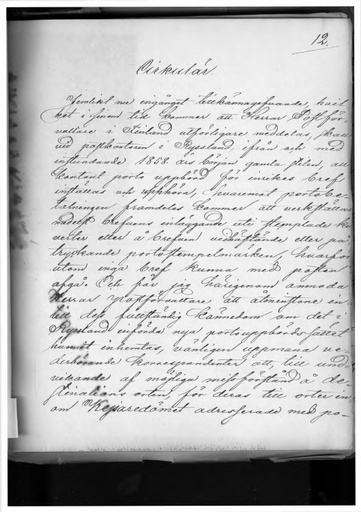 12.
Cirkulär.
Jemlikt nu ingånget tillkännagifvande, hvil-
ket i sinom tid kommer att Herrar Postför-
valtare i Finland utförligare meddelas, skall
vid postkontoren i Ryssland ifrån och med
instundande 1858 års början gamla stilen, all
kontant porto uppbörd för inrikes bref
inställas och upphöra, hvaremot portobe-
talningen framdeles kommer att verkställas
medelst brefvens inläggande uti stemplade ku-
verter eller å brefven vidhäftande eller på-
tryckande portostempelmärken, hvarför-
utom inga bref kunna med posten
afgå. Och får jag härigenom anmoda
Herrar Postförvaltare att åtminstone in
till dess fullständig kännedom om det i
Ryssland införda nya portouppbörds sättet
hunnit inhemtas, vänligen uppmana ve-
derbörande korrespondenter att, till und-
vikande af möjliga missförstånd å de-
stinations orten, för deras till orter in-
om Kejsaredömet adresserade med po-